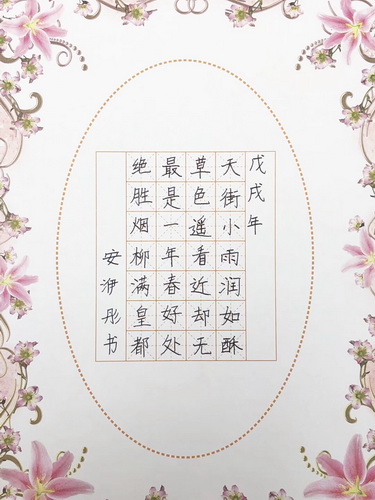 戊戌年
天街小雨润如酥
草色遥看近却无
最是一年春好处
绝胜烟柳满皇都
安洢彤书